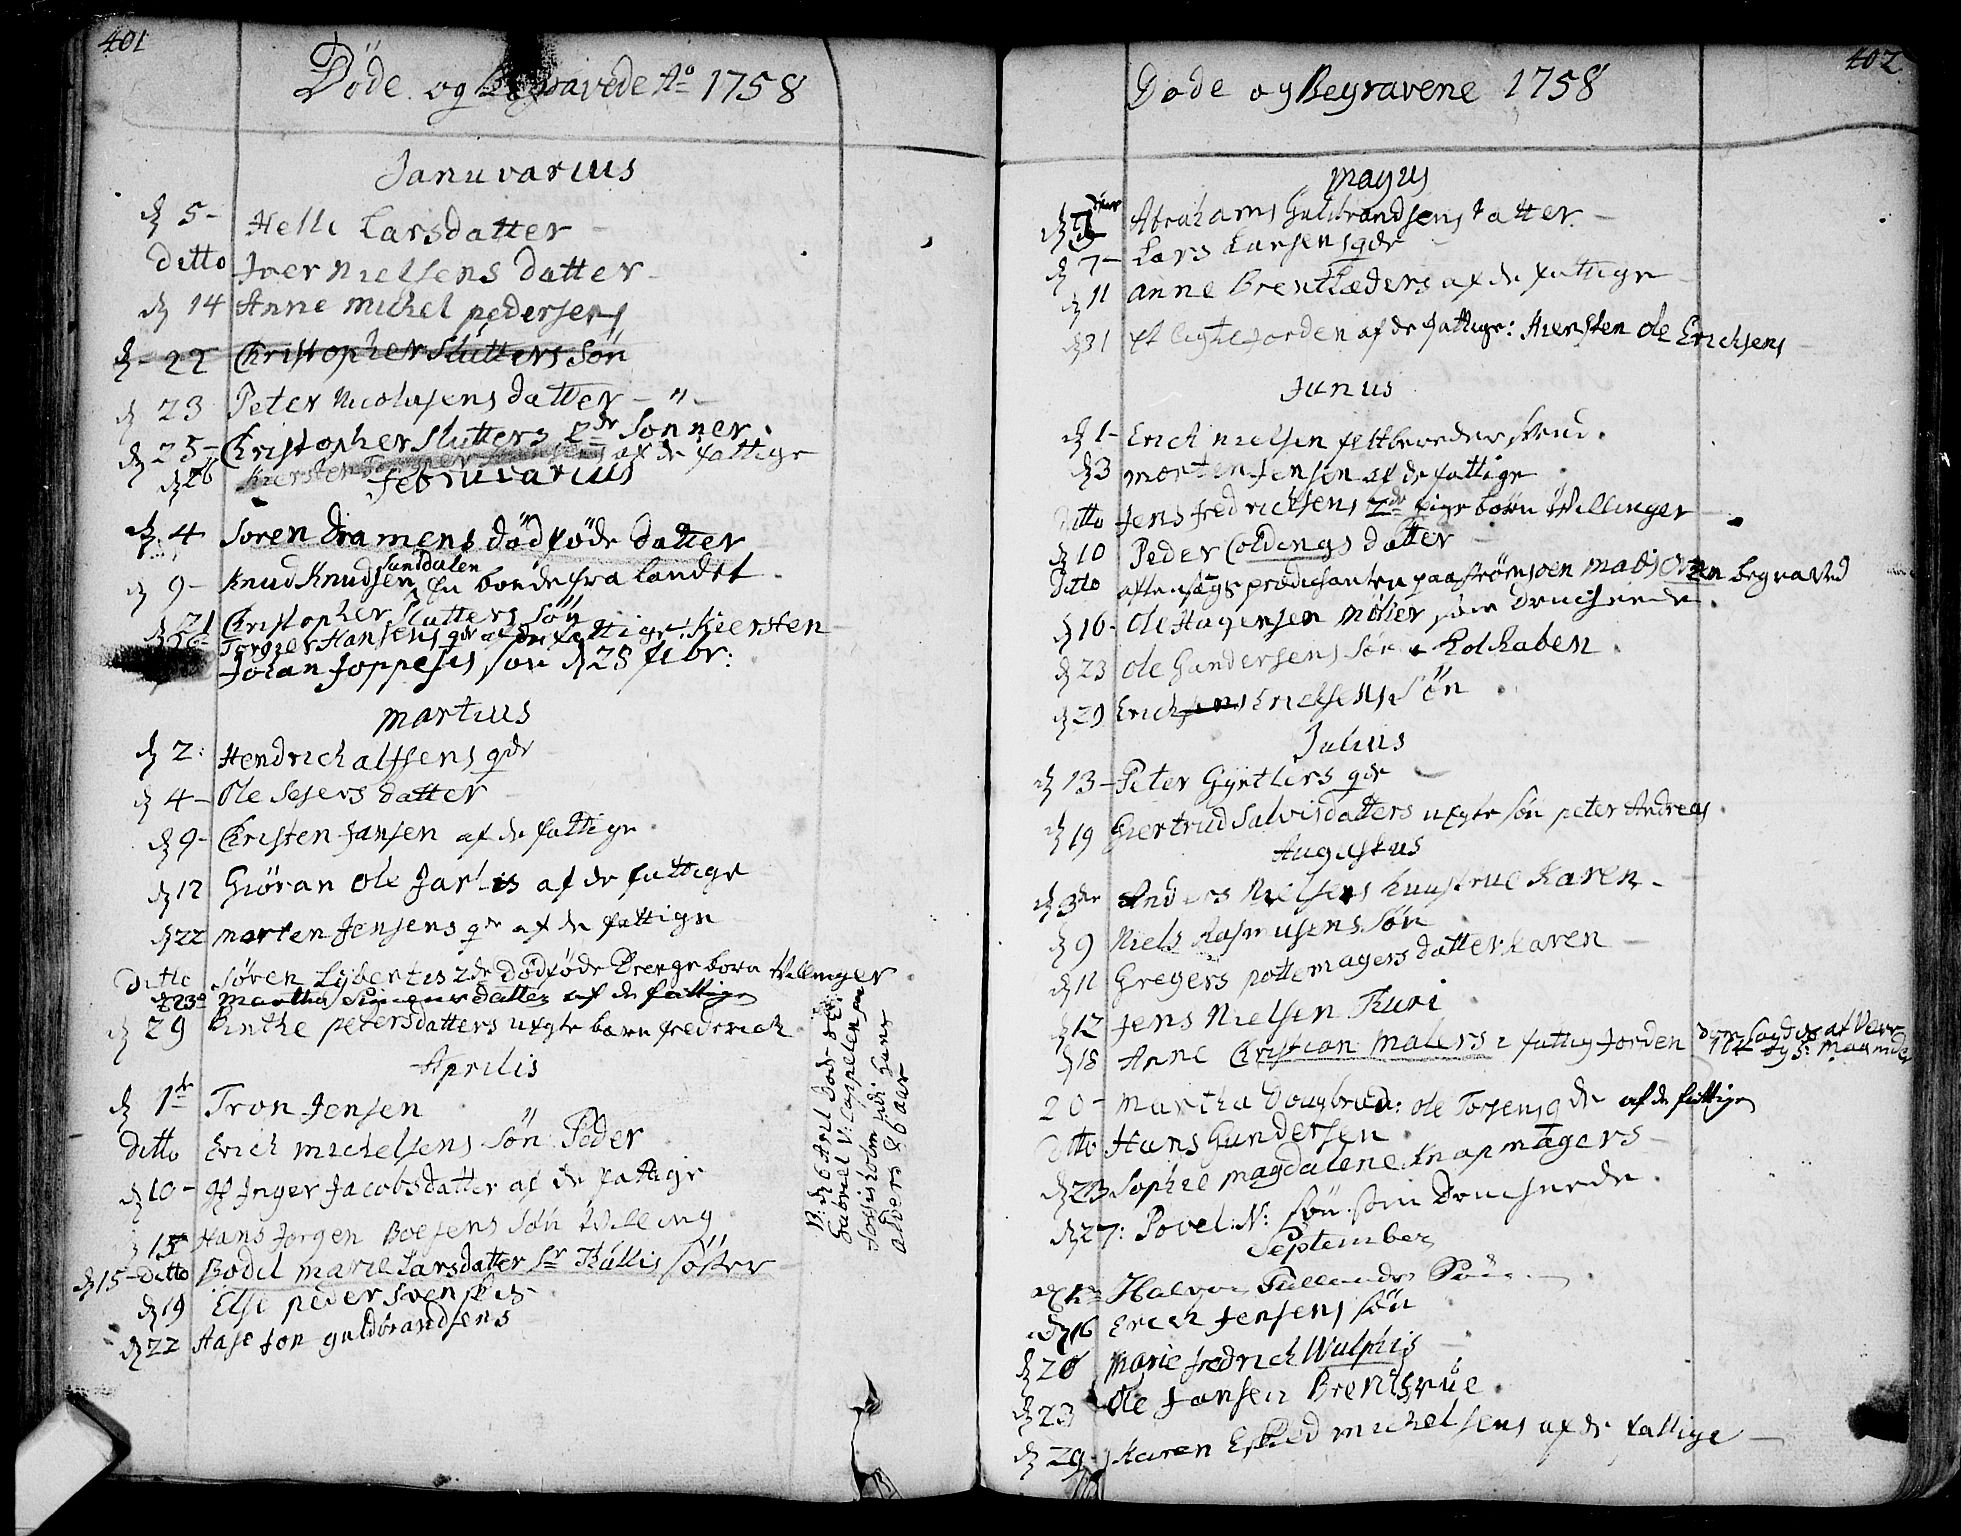 401
Döde og Begravede Aº 1758
Januvarius
d 5 - Helle Larsdatter -
ditto Iver Nielsens datter -
d 14 Anne Michel pedersens
d - 22 Christopher Slutters Søn
d 23 Peter Nicolasens datter - " -
d 25 - Christopher Slutters 2de Sønner.
d 26 Kiersten af de fattige
Februvarius
d. 4 Søren Dramens dødføde datter
d 9 - Knud Knudsen Sanddalen en bonde fra Landet.
d 21 Christopher Slutters Søn
d 26 - Torger Hansens qde af de fattige: Kiersten -
Johan Joppesis søn d 28 febr:
Martius
d 2: Hendrich alfsens qde
d 4 - Ole Sejers datter -
d 9 - Christen Jansen af de fattige.
d 12 Giøran Ole af de fattige
d 22 Morten Jensens qde af de fattige
Ditto Søren Lybertis 2de dødføde Drenge børn tvillinger.
d 23 Martha datter af de fattige
d 29 Binthe petersdatters uegte barn frederich.
Aprilis
d 1de Tron Jensen.
Ditto Erich Michelsens Søn Peder.
d 10 - Inger Jacobsdatter af de fattige
d 15 Hans Jørgen Boesens Søn tvilling.
d 15 - ditto Bodel Marie Larsdatter Sr Tullis søster
d 19 Else peder Svenskes -
d 22 Aase Jon guldbrandsens -
B: d 6 April døde
Gabriel V: Cappelen paa
hans
alders 86 aar
402
Døde og Begravene 1758
Mayus
d 5 Abrahams Guldbrandsens datter -
d 7 - Lars Larsens qde
d 11 Anne Brentlæders af de fattige -
d 31 af de fattige: Kiersten Ole Erichsens -
Junus
d 1 - Erich Nielsen feltbereder svend.
d 3 Morten Jensen af de fattige
ditto Jens fredrichsens 2de pige børn tvillinger -
d 10 Peder Coldings datter -
Ditto aftensangs prædicanten paa Strømsøen begraved
d 16 - Ole Hagensen Møller som Druchnede.
d 23 Ole Gundersens Søn.
d 29 Erich Erichsens Søn.
Julius
d 13 - Peter Gyntlers qde -
d 19 Giertrud Salvisdatters uegte søn peter Andreas.
Augustus
d 3de Anders Nielsens hustrue Karen -
d 9 Niels Rasmusens Søn
d 11 Gregers pottemagers datter Karen -
d 12 Jens Nielsen Thuri.
d 18 Anne Christian Malers i fattig Jorden
20 - Martha Ole qde af de fattige
Ditto Hans Gundersen.
d 23 Sophie Magdalene Knapmagers -
d 27: Povel: N: søn som Druchnede.
September
Halvor Søn. -
d 16 Erich Jensens Søn
d 20 Marie fredrich Wulphis -
d 23 Ole Jansen Brentsrue.
d 29 Karen Eskild Michelsens af de fattige -